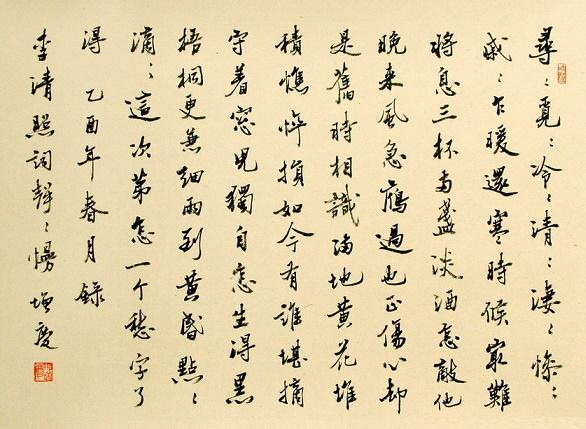 尋〻覓〻冷〻清〻淒〻慘〻
戚〻乍暖還寒時候冣難
將息三杯兩盞淡酒怎敵他
晚来風急鴈過也正傷心却
是舊時相識滿地黄花堆
積憔悴損如今有誰堪摘
守着窓兒獨自怎生得黑
梧桐更兼細雨到黄昏點〻
滴〻這次第怎一个愁字了
得 乙酉年春月錄
李清照詞聲〻慢